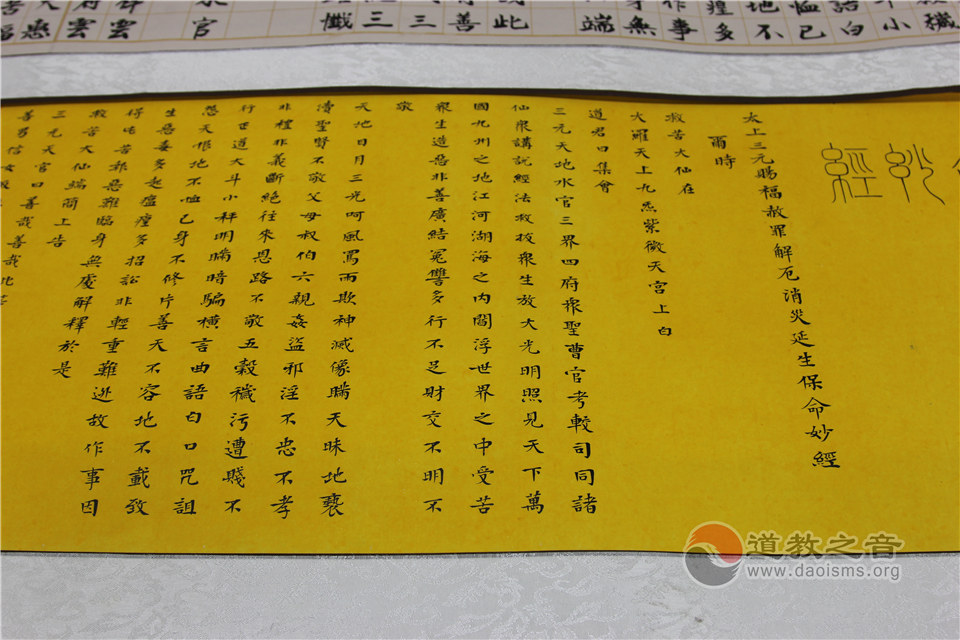 妙經
太上三元賜福赦罪解厄消災延生保命妙經
爾時
救苦大仙在
大羅天上九炁紫微天宮上白
道君曰集會
三元天地水官三界四府衆聖曹官考較司同諸
仙衆講說經法救拔衆生放大光明照見天下萬
國九州之地江河湖海之內閻浮世界之中受苦
衆生造惡非善廣結冤讐多行不足財交不明不
敬
天地日月三光呵風罵雨欺神滅像瞞天昧地褻
瀆聖賢不敬父母叔伯六親姦盜邪淫不忠不孝
非禮非義斷絕往來恩路不敬五穀穢污遭賤不
行世道大斗小秤明瞞暗騙橫言曲語白口咒詛
怨天作地不恤己身不修片善天不容地不載致
生惡毒多起瘟瘴多招訟非輕重難逃故作事因
得出苦報惡難臨身無處解釋於是
救苦大仙端簡上告
三元天官曰善哉善哉此苦
善男信女
穢
小
語白
恤己
地不
瘴多
作事
無
端
此
有善
三
經三
懺
水官
雲
府雲
道教之音
www.daoisms.org